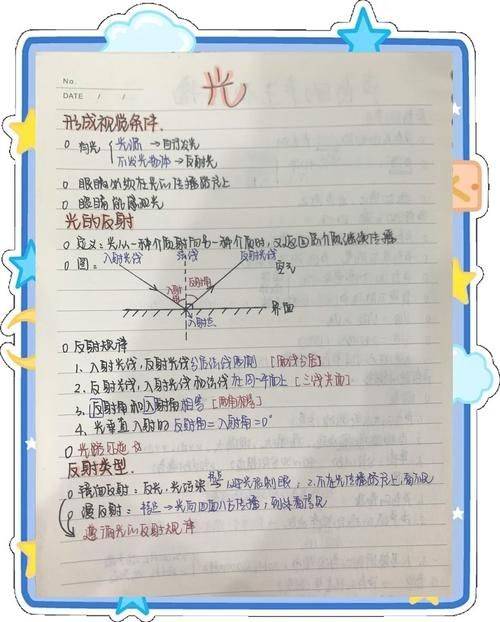 No.
DATE / /
光
形成视觉条件.
有光 光源→自行发光
不发光物体→反射光
眼睛必须在光的传播路径上
眼睛能感视光
光的反射
定义:光从一种介质射向另一种介质时,又返回原介质继续传播
图:
入射光线 法线 反射光线
入射角 反射角 空气
入射点 界面
反射规律
1、入射光线,反射光线分居法线两侧 [两线分居]
2、反射光线,入射光线和法线在同一平面上 [三线共面]
3、反射角和入射角相等 [两角相等]
4、光垂直入射时反射角=入射角=0°
光路可逆
反射类型.
镜面反射:反光,光污染 特点→ 1.光刺眼, 2.不在光传播路径上,看不见
漫反射:特点→光向四面八方传播,到处看得见
遵循光的反射规律